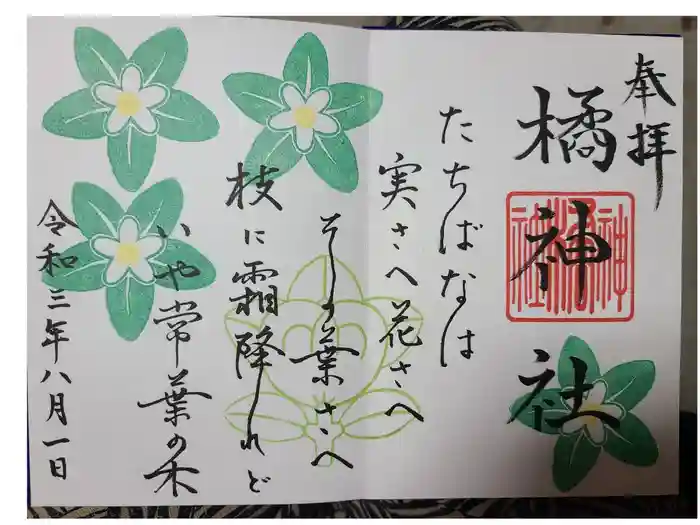 奉拝
橘神社
橘神社
たちばなは
実さへ花さへ
その葉さへ
枝に霜降れど
いや常葉の木
令和三年八月一日